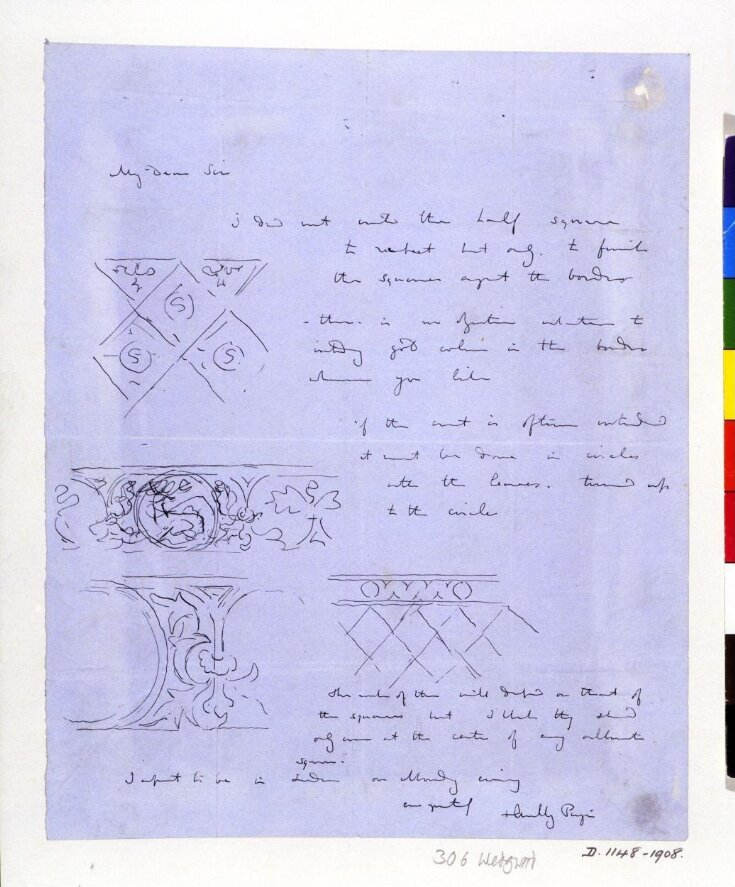 My Dear Sir
I did not want the half square
to repeat but only to finish
the squares against the border
- there is no objection whatever to
gold colour in the border
wherever you like
if the is often
it must be done in circles
with the leaves turned up
to the circle
S
S
S
the of this will depend on that of
the squares but I think they should
only come at the centre of every alternate
square.
I expect to be in London on Monday evening
AWelby Pugin
306 Wedgwood
D.1148-1908.